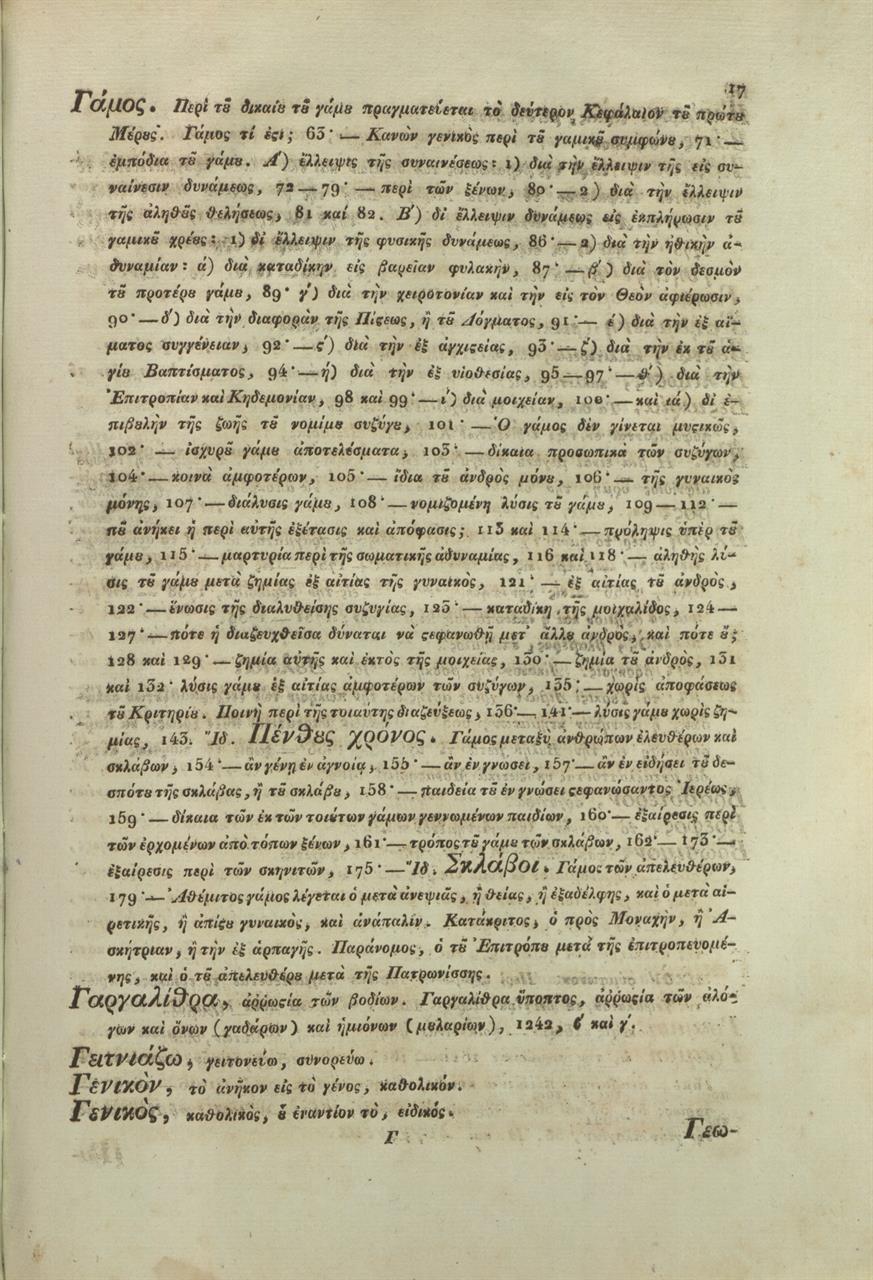 17
Γάμος. Περὶ τȣ̃ δικαίȣ τȣ̃ γάμȣ πραγματεύεται τὸ δεύτερον Κεφάλαιον τȣ̃ πρώτȣ
Μέρȣς. Γάμος τί ἐϛι; 63· — Κανὼν γενικὸς περὶ τȣ̃ γαμικȣ̃ συμφώνȣ, 71· —
ἐμπόδια τȣ̃ γάμȣ. Α΄) ἔλλειψις τῆς συναινέσεως: 1) διὰ τὴν ἔλλειψιν τῆς εἰς συ-
ναίνεσιν δυνάμεως, 72 — 79· — περὶ τῶν ξένων, 80· — 2) διὰ τὴν ἔλλειψιν
τῆς ἀληθȣ̃ς θελήσεως, 81 καί 82. Β΄) δι ἔλλειψιν δυνάμεως εἰς ἐκπλήρωσιν τȣ̃
γαμικȣ̃ χρέȣς: 1) δι ἔλλειψιν τῆς φυσικῆς δυνάμεως, 86· — 2) διὰ τὴν ἠθικὴν ἀ-
δυναμίαν: ά) διὰ καταδίκην εἰς βαρεῖαν φυλακὴν, 87· — β΄) διὰ τὸν δεσμὸν
τȣ̃ προτέρȣ γάμȣ, 89· γ΄) διὰ τὴν χειροτονίαν καὶ τὴν εἰς τὸν Θεὸν ἀφιέρωσιν,
90· — δ΄) διὰ τὴν διαφορὰν τῆς Πίϛεως, ἢ τȣ̃ Δόγματος, 91· — έ) διὰ τὴν ἐξ αἵ-
ματος συγγένειαν, 92· — ϛ΄) διὰ τὴν ἐξ ἀγχιϛείας, 93· — ζ΄) διὰ τὴν ἐκ τȣ̃ ἁ-
γίȣ Βαπτίσματος, 94· — ή) διὰ τὴν ἐξ υἱοθεσίας, 95 — 97· — θ΄) διὰ τὴν
Ἐπιτροπίαν καὶ Κηδεμονίαν, 98 καὶ 99· — ί) διὰ μοιχείαν, 100· — καὶ ιά) δι ἐ-
πιβȣλὴν τῆς ζωῆς τȣ̃ νομίμȣ συζύγȣ, 101· — Ὁ γάμος δὲν γίνεται μυϛικῶς,
102· — ἰσχυρȣ̃ γάμȣ ἀποτελέσματα, 103· — δίκαια προσωπικὰ τῶν συζύγων,
104· — κοινὰ ἀμφοτέρων, 105· — ἴδια τȣ̃ ἀνδρὸς μόνȣ, 106· — τῆς γυναικὸς
μόνης, 107· — διάλυσις γάμȣ, 108· — νομιζομένη λύσις τȣ̃ γάμȣ, 109 — 112· —
πȣ̃ ἀνήκει ἡ περὶ αὐτῆς ἐξέτασις καὶ ἀπόφασις; 113 καὶ 114· — πρόληψις ὑπὲρ τȣ̃
γάμȣ, 115· — μαρτυρία περὶ τῆς σωματικῆς ἀδυναμίας, 116 καὶ 118· — ἀληθὴς λύ-
σις τȣ̃ γάμȣ μετὰ ζημίας ἐξ αἰτίας τῆς γυναικὸς, 121· — ἐξ αἰτίας τȣ̃ ἀνδρὸς,
122· — ἕνωσις τῆς διαλυθείσης συζυγίας, 123· — καταδίκη τῆς μοιχαλίδος, 124 —
127· — πότε ἡ διαζευχθεῖσα δύναται νὰ ϛεφανωθῇ μετ᾽ ἄλλȣ ἀνδρὸς, καὶ πότε ȣ̓;
128 καὶ 129· — ζημία αὐτῆς καὶ ἐκτὸς τῆς μοιχείας, 130· — ζημία τȣ̃ ἀνδρὸς, 131
καὶ 132· λύσις γάμȣ ἐξ αἰτίας ἀμφοτέρων τῶν συζύγων, 135· — χωρὶς ἀποφάσεως
τȣ̃ Κριτηρίȣ. Ποινὴ περὶ τῆς τοιαύτης διαζεύξεως, 136· — 141· — λύσις γάμȣ χωρὶς ζη-
μίας, 143. Ἴδ. Πένθȣς χρόνος. Γάμος μεταξὺ ἀνθρώπων ἐλευθέρων καὶ
σκλάβων, 154· — ἂν γένῃ ἐν ἀγνοίᾳ, 155· — ἂν ἐν γνώσει, 157· — ἂν ἐν εἰδήσει τȣ̃ δε-
σπότȣ τῆς σκλάβας, ἢ τȣ̃ σκλάβȣ, 158· — παιδεία τȣ̃ ἐν γνώσει ϛεφανώσαντος Ἱερέως,
159· — δίκαια τῶν ἐκ τῶν τοιȣ́των γάμων γεννωμένων παιδίων, 160· — ἐξαίρεσις περὶ
τῶν ἐρχομένων ἀπὸ τόπων ξένων, 161· — τρόπος τȣ̃ γάμȣ τῶν σκλάβων, 162· — 173· —
ἐξαίρεσις περὶ τῶν σκηνιτῶν, 175· — Ἴδ. Σκλάβοι. Γάμος τῶν ἀπελευθέρων,
179· — Ἀθέμιτος γάμος λέγεται ὁ μετὰ ἀνεψιᾶς, ἢ θείας, ἢ ἐξαδέλφης, καὶ ὁ μετὰ αἱ-
ρετικῆς, ἢ ἀπίϛȣ γυναικὸς, καὶ ἀνάπαλιν. Κατάκριτος, ὁ πρὸς Μοναχὴν, ἢ Ἀ-
σκήτριαν, ἢ τὴν ἐξ ἁρπαγῆς. Παράνομος, ὁ τȣ̃ Ἐπιτρόπȣ μετὰ τῆς ἐπιτροπευομέ-
νης, καὶ ὁ τȣ̃ ἀπελευθέρȣ μετὰ τῆς Πατρωνίσσης.
Γαργαλίθρα, ἀῤῥωϛία τῶν βοδίων. Γαργαλίθρα ὕποπτος, ἀῤῥωϛία τῶν ἀλό-
γων καὶ ὄνων (γαδάρων) καὶ ἡμιόνων (μȣλαρίων), 1242, β΄ καὶ γ΄.
Γειτνιάζω, γειτονεύω, συνορεύω.
Γενικὸν, τὸ ἀνῆκον εἰς τὸ γένος, καθολικόν.
Γενικὸς, καθολικὸς, ȣ̔͂ ἐναντίον τὸ, εἰδικός.
Γ
Γεω-